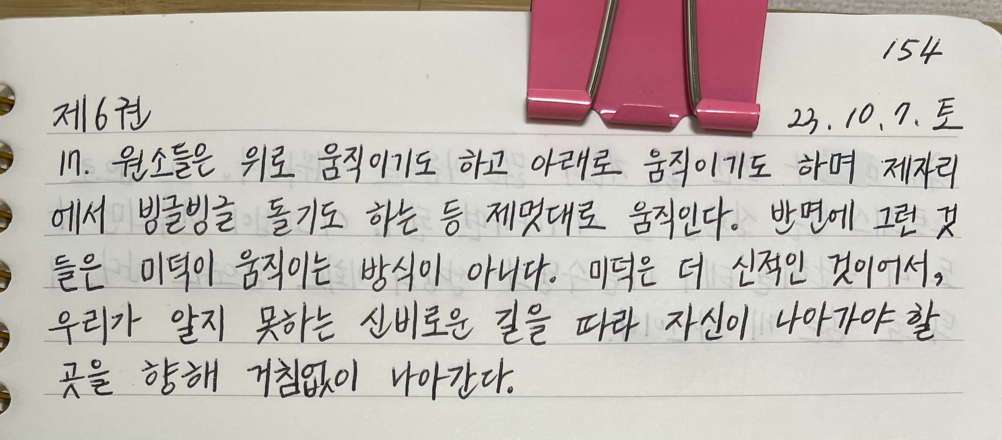 154
제6권
23. 10. 7. 토
17. 원소들은 위로 움직이기도 하고 아래로 움직이기도 하며 제자리
에서 빙글빙글 돌기도 하는 등 제멋대로 움직인다. 반면에 그런 것
들은 미덕이 움직이는 방식이 아니다. 미덕은 더 신적인 것이어서,
우리가 알지 못하는 신비로운 길을 따라 자신이 나아가야 할
곳을 향해 거침없이 나아간다.